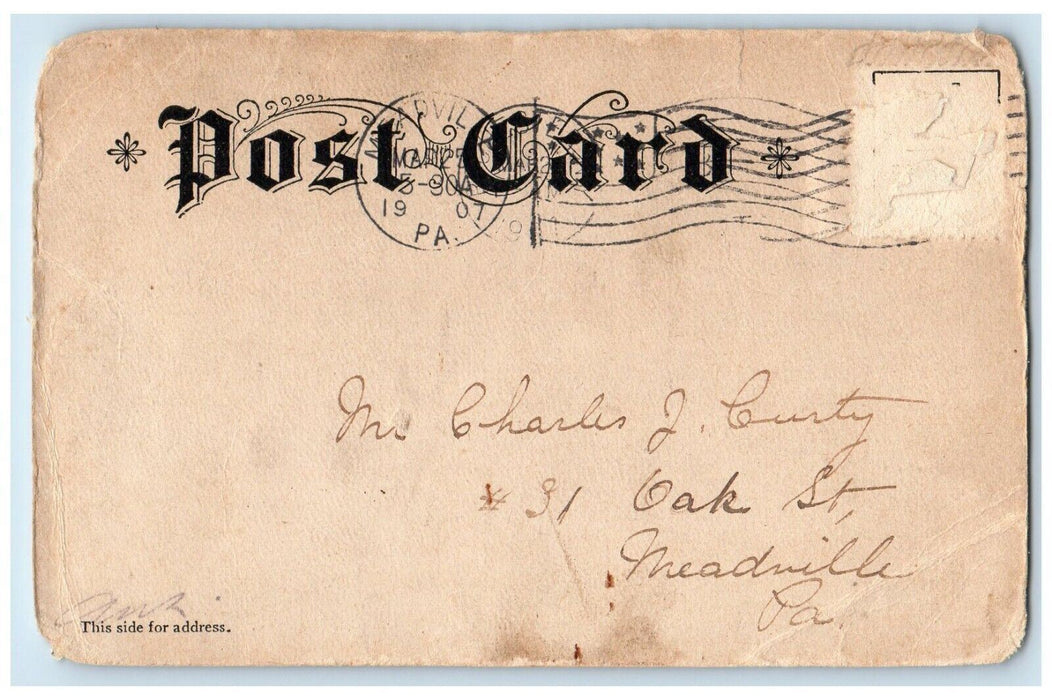 Post Card
PA.
19 07
Mr Charles J. Curty
# 31 Oak St,
Meadville
Pa.
This side for address.